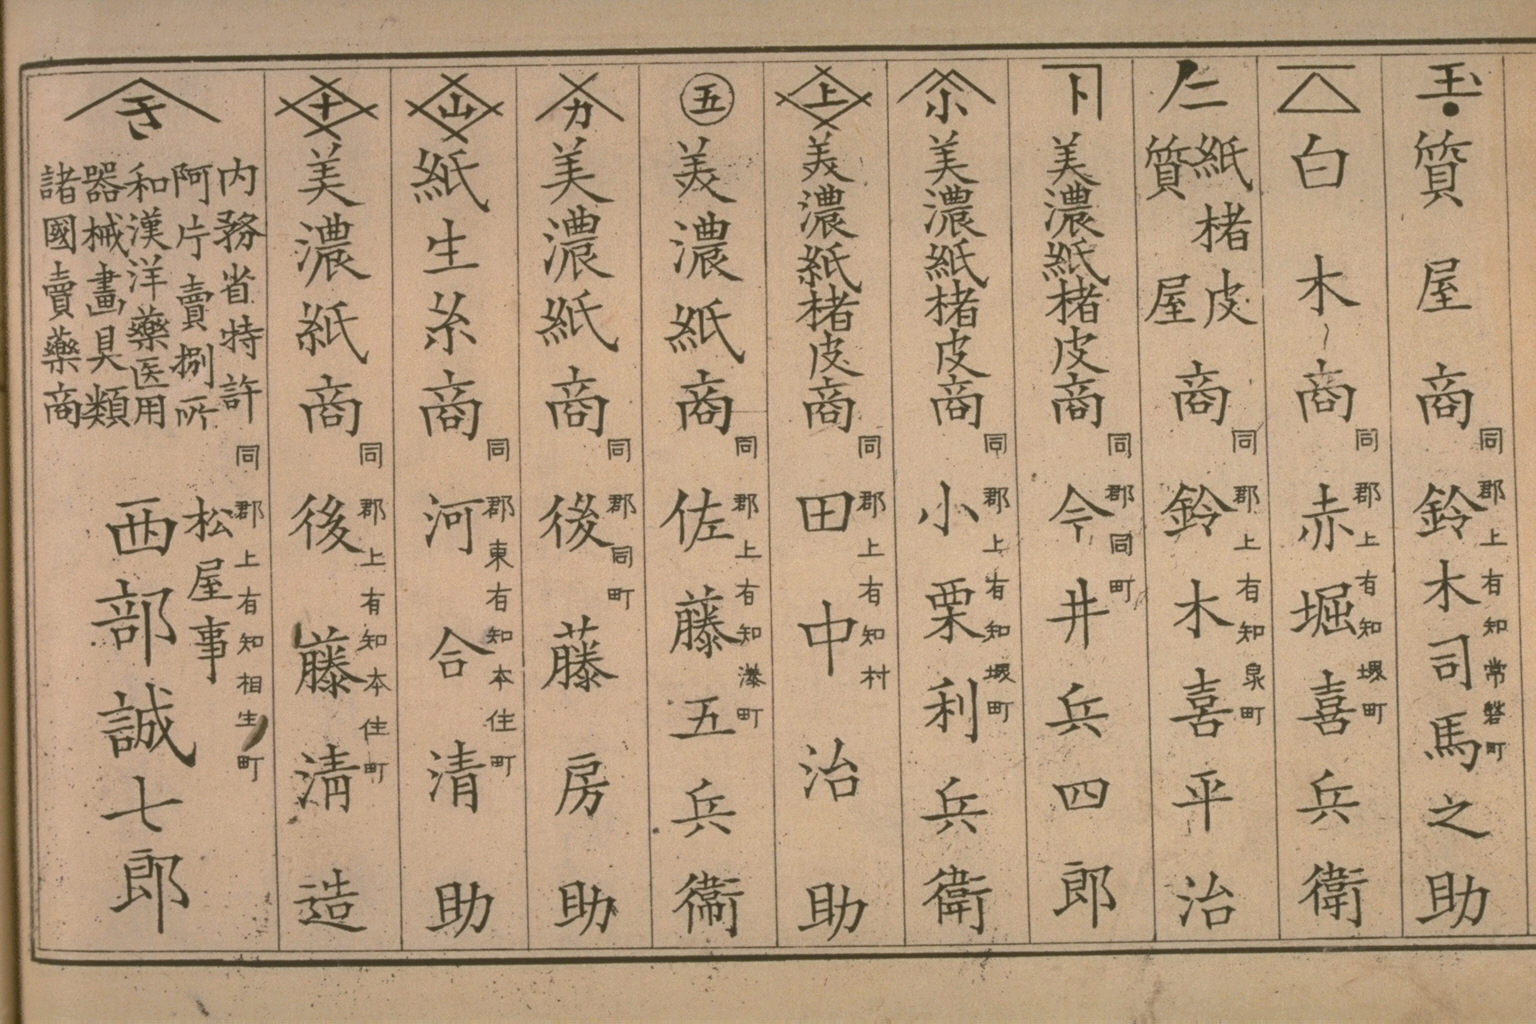 玉
質屋商
同郡上有知常磐町
鈴木司馬之助
白木商
同郡上有知堺町
赤堀喜兵衛
仁
紙楮皮
質屋
商
同郡上有知泉町
鈴木喜平治
卜
美濃紙楮皮商
同郡同町
今井兵四郎
小
美濃紙楮皮商
同郡上有知堺町
小栗利兵衛
上
美濃紙楮皮商
同郡上有知村
田中治助
五
美濃紙商
同郡上有知湊町
佐藤五兵衞
カ
美濃紙商
同郡同町
後藤房助
山
紙生糸商
同郡東有知本住町
河合清助
十
美濃紙商
同郡上有知本住町
後藤淸造
き
内務省特許
阿片賣捌所
和漢洋藥医用
器械畫具類
諸國賣藥商
同郡上有知相生町
松屋事
西部誠七郎